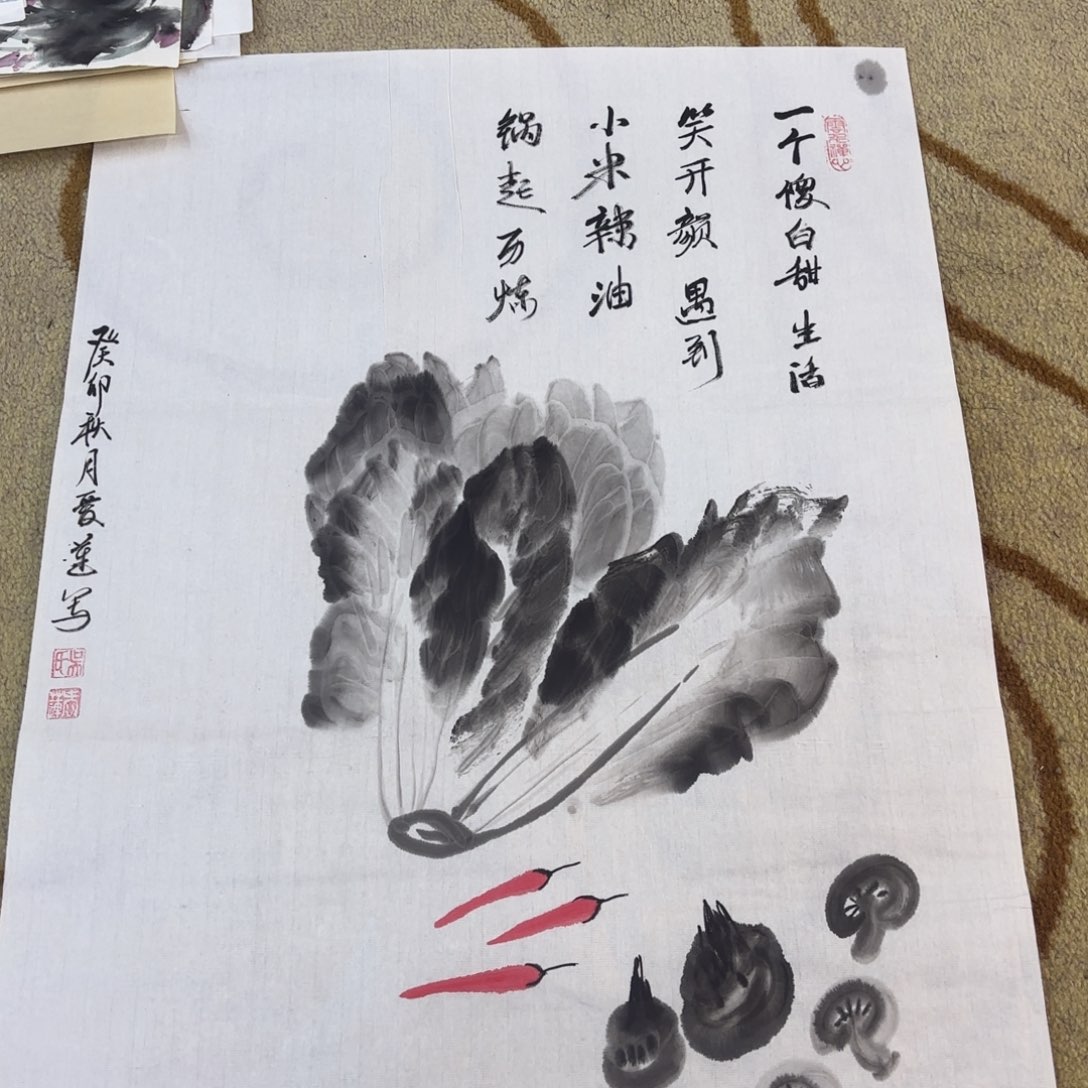 一个傻白甜生活
笑开颜遇到
小米辣油
锅起万炼
癸卯秋月爱莲写